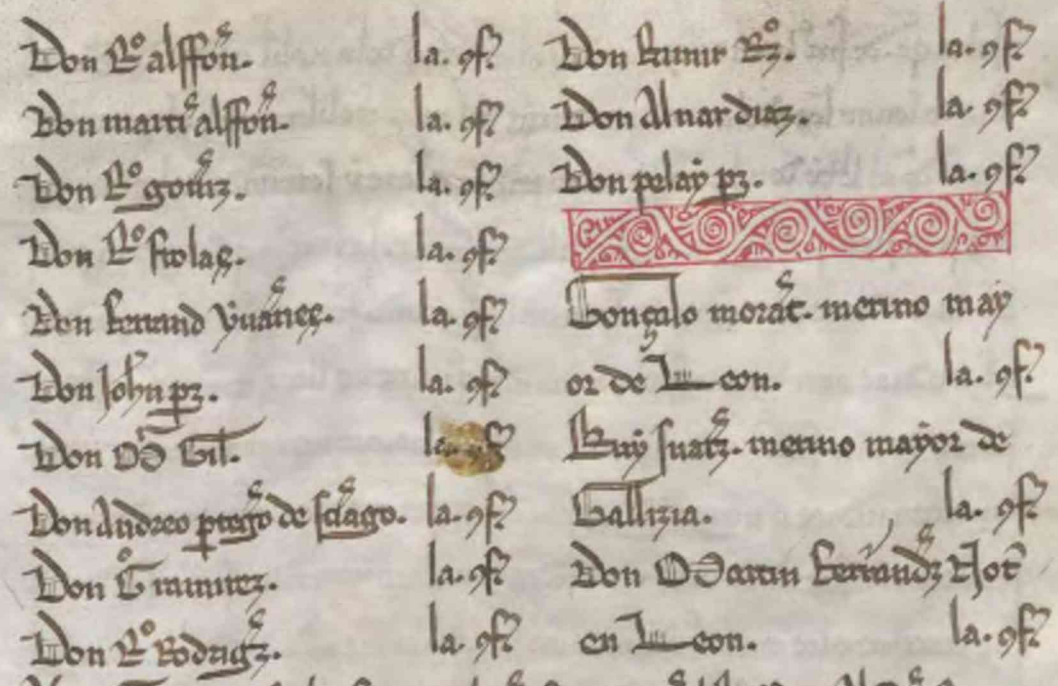 Don Ro alffon. la. 9f.
Don marti alffon. la. 9f.
Don Ro gomz. la. 9f.
Don Ro frolaz. la. 9f.
Don ferrand yuanez. la. 9f.
Don John pz. la. 9f.
Don Gil. la. 9f.
Don Andreo de la. 9f.
Don Go ramirez. la. 9f.
Don Ro Rodrigz. la. 9f.
Don Ramir Rz. la. 9f.
Don Aluar diaz. la. 9f.
Don pelay pz. la. 9f.
Gonçalo morat. merino may
or de Leon. la. 9f.
Ruy suarz. merino mayor de
Gallizia. la. 9f.
Don Martin ferrandz Not
en Leon. la. 9f.